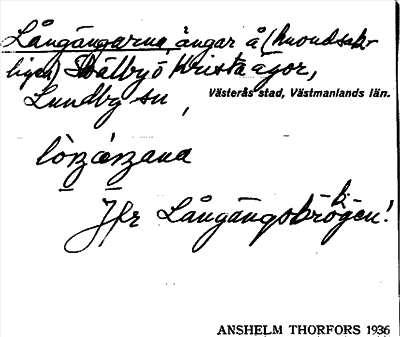 Långängarna, ängar å (huvudsak-
ligen) Hälbyö Krista ägor,
Lundby sn,
Västerås stad, Västmanlands län.
Jfr Långängsbrö-k-gen!
ANSHELM THORFORS 1936